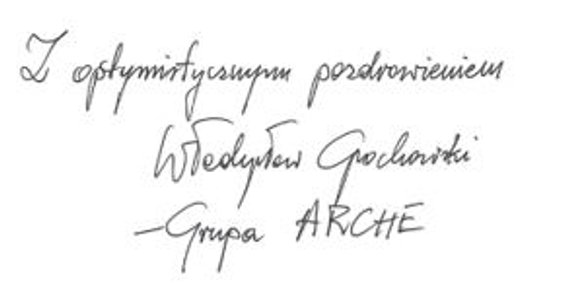 Z optymistycznym pozdrowieniem
Władysław Grochowski
– Grupa ARCHE